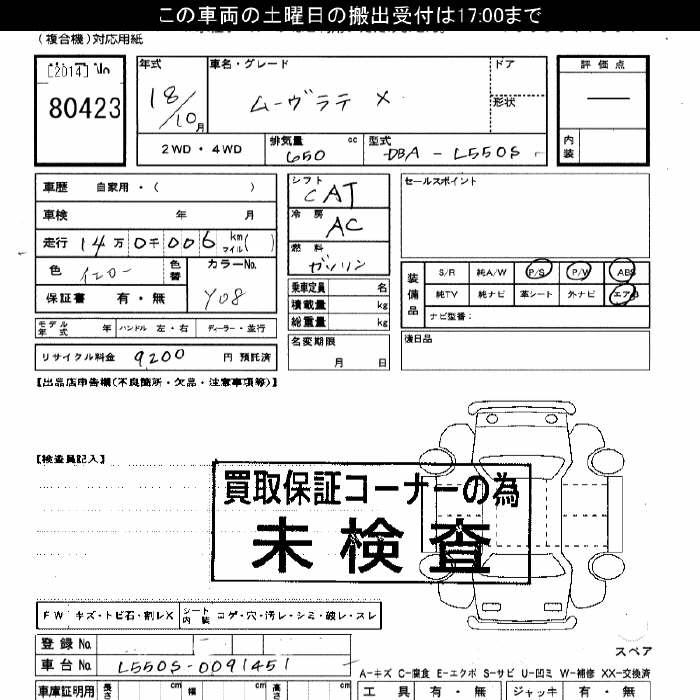 この車両の土曜日の搬出受付は17:00まで
(複合機)対応用紙
[2014] No
80423
年式 車名・グレード ドア 評価点
18/10月 ムーヴラテ X 形状
2WD・4WD 排気量 650 cc 型式 DBA-L550S 内装
車歴 自家用・( )
シフト CAT
セールスポイント
車検 年 月
冷房 AC
走行 14万0千006 km マイル( )
燃料 ガソリン
色 イエロー 色替 カラーNo. Y08
装備品 S/R 純A/W P/S P/W ABS
保証書 有・無
乗車定員 名
純TV 純ナビ 革シート 外ナビ エアB
積載量 kg
ナビ型番:
モデル年式 年 ハンドル 左・右 ディーラー・並行
総重量 kg
リサイクル料金 9200 円 預託済
名変期限 月 日
後日品
【出品店申告欄(不良箇所・欠品・注意事項等)】
【検査員記入】
買取保証コーナーの為
未検査
FW キズ・トビ石・割レX シート内装 コゲ・穴・汚レ・シミ・破レ・スレ
登録No.
スペア
車台No. L550S-0091451
A-キズ C-腐食 E-エクボ S-サビ U-凹ミ W-補修 XX-交換済
車庫証明用 長さ cm 幅 cm 高さ cm 工具 有・無 ジャッキ 有・無